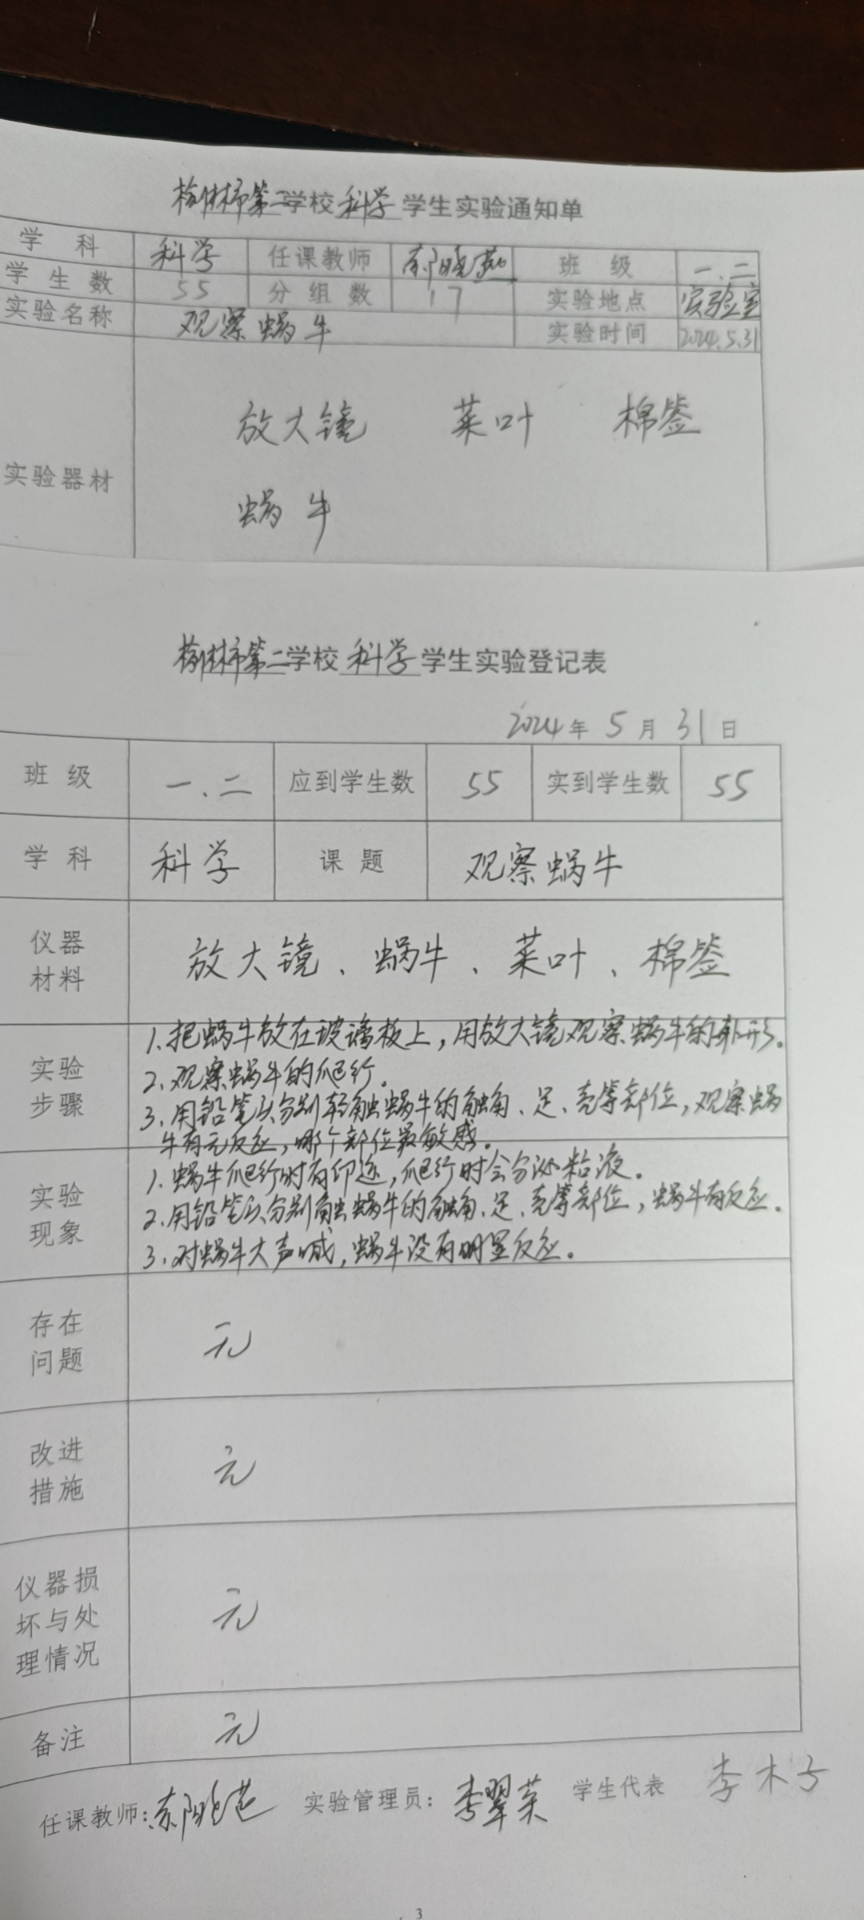 榆林市第二学校 科学 学生实验通知单
学 科 科学 任课教师 班 级 一.二
学 生 数 55 分 组 数 17 实验地点 实验室
实验名称 观察蜗牛 实验时间 2024.5.31
放大镜 菜叶 棉签
实验器材
蜗牛
榆林市第二学校 科学 学生实验登记表
2024 年 5 月 31 日
班 级 一.二 应到学生数 55 实到学生数 55
学 科 科学 课 题 观察蜗牛
仪器材料 放大镜、蜗牛、菜叶、棉签
实验步骤
1.把蜗牛放在玻璃板上,用放大镜观察蜗牛的外形。
2.观察蜗牛的爬行。
3.用铅笔头分别轻触蜗牛的触角、足、壳等部位,观察蜗
牛有无反应,哪个部位最敏感。
实验现象
1.蜗牛爬行时有印迹,爬行时会分泌粘液。
2.用铅笔头分别触蜗牛的触角、足、壳等部位,蜗牛有反应。
3.对蜗牛大声喊,蜗牛没有明显反应。
存在问题 无
改进措施 无
仪器损坏与处理情况 无
备注 无
任课教师: 实验管理员:李翠英 学生代表 李木子
3